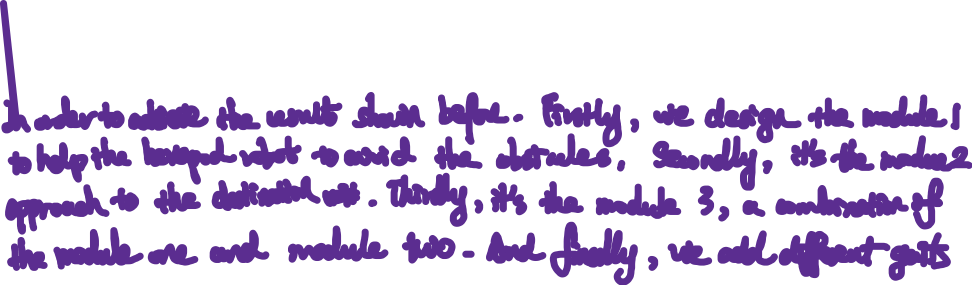 In order to achieve the results shown before. Firstly, we design the module 1
to help the hexapod robot to avoid the obstacles. Secondly, it's the module 2
approach to the destination with. Thirdly, it's the module 3, a combination of
the module one and module two. And finally, we add different gaits